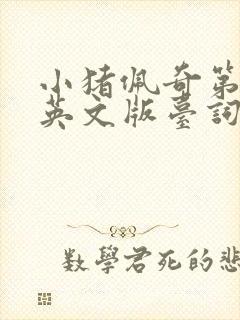 小猪佩奇第
英文版臺詞
数學君死的悲